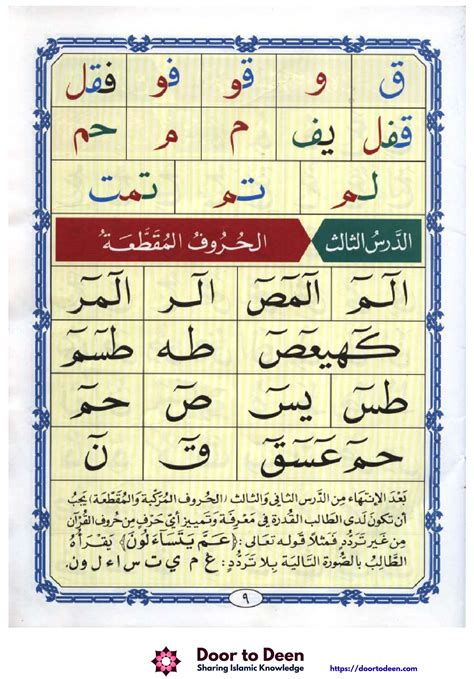 ق و قو فو فقل
قفل يف م م حم
لم تم تمت
الدَّرسُ الثالث الحُرُوفُ المُقَطَّعَةُ
الٓمٓ الٓمٓصٓ الٓر الٓمٓر
كٓهيعٓصٓ طه طسٓمٓ
طسٓ يسٓ صٓ حمٓ
حمٓ عٓسٓقٓ قٓ نٓ
بَعْدَ الانتِهَاءِ مِنَ الدَّرسِ الثَّانِي وَالثالث (الحُروفِ المُرَكَّبة وَالمُقَطَّعَة) يَجِبُ
أن تكونَ لَدى الطالبِ القُدرة فِي مَعرِفَة وَتَمييز أيّ حَرفٍ مِن حُروفِ القُرآنِ
مِن غَيرِ تَردُّدٍ فَمثلاً قَولُه تعالى: ﴿عَمَّ يَتَسَاءَلُونَ﴾ يَقرَأُهُ
الطَّالِبُ بِالصُّورَةِ التَّالِيَةِ بِلا تَردُّدٍ: ع م ي ت س ا ء ل و ن.
٩
Door to Deen
Sharing Islamic Knowledge
https://doortodeen.com